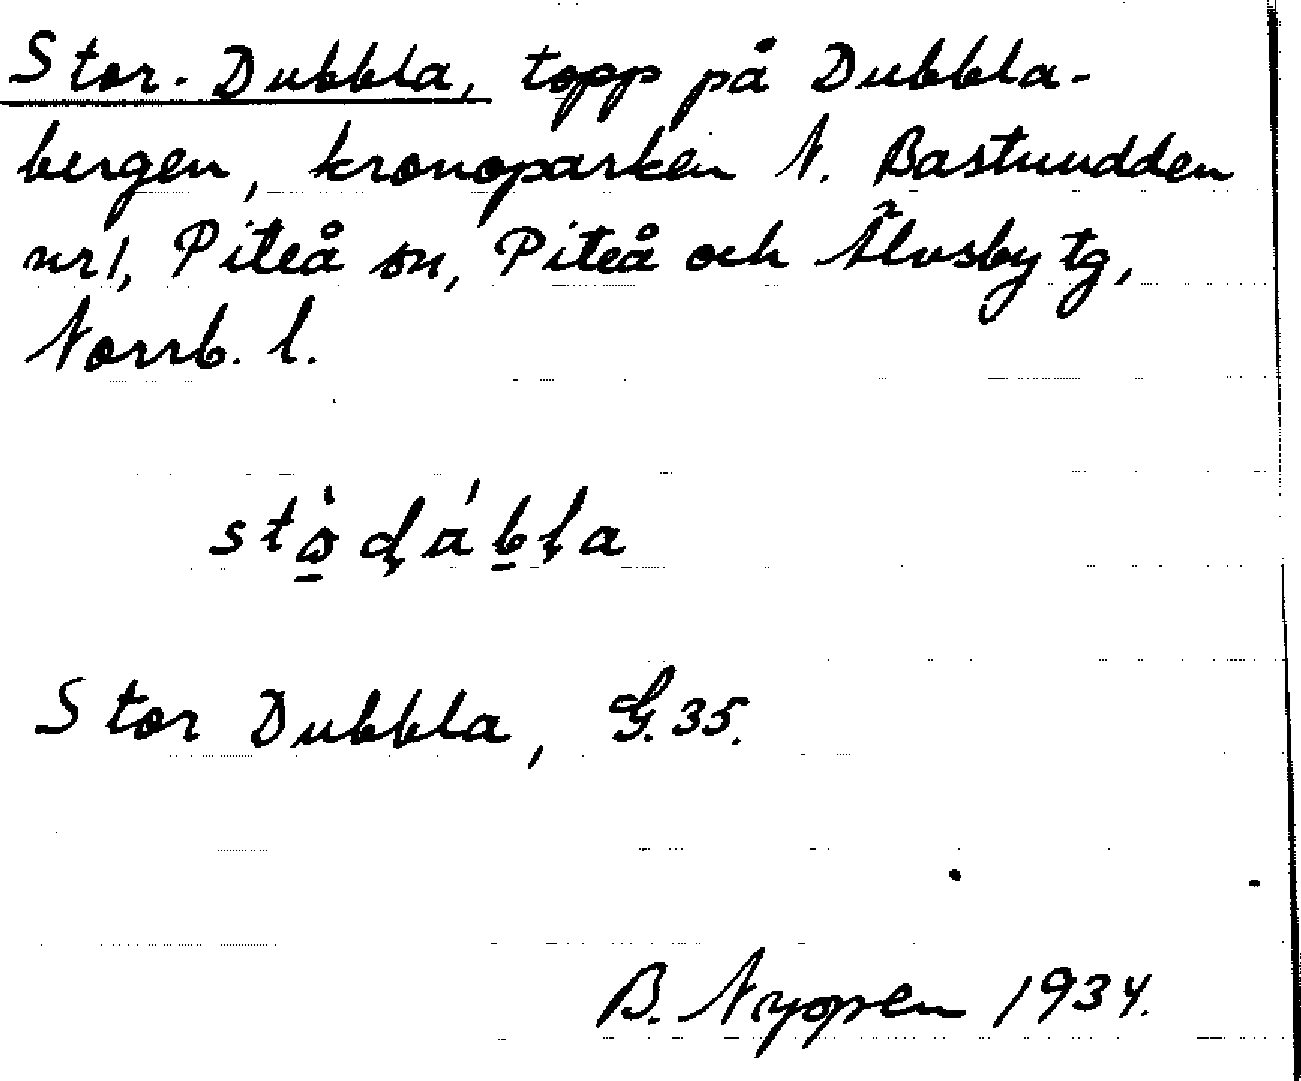 Stor-Dubbla, topp på Dubbla-
bergen, kronoparken N. Bastuudden
nr 1, Piteå sn, Piteå och Älvsby tg,
Norrb. l.
Stor Dubbla, G. 35.
B. 1934.